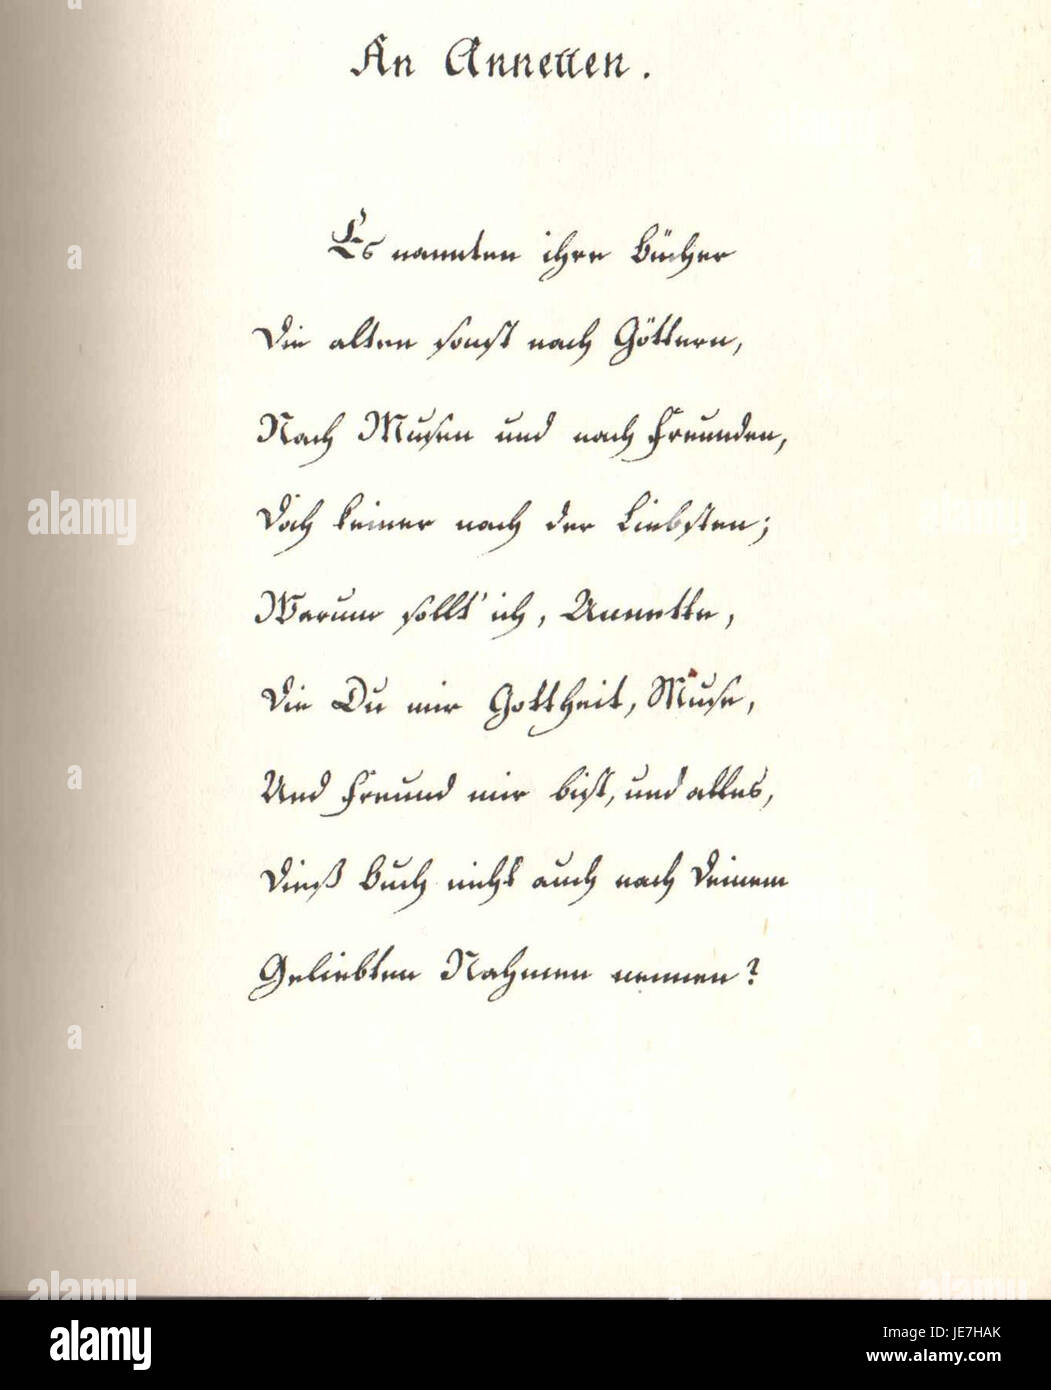 a
An Annetten.
Es nannten ihre Bücher
a
Die alten sonst nach Göttern,
Nach Musen und nach Freunden,
alamy
Doch keiner nach der Liebsten;
Warum sollt' ich, Annette,
Die Du mir Gottheit, Muse,
a
Und Freund mir bist, und alles,
Dieß Buch nicht auch nach Deinem
Geliebten Nahmen nennen?
a
alamy
alamy
alamy
Image ID: JE7HAK
www.alamy.com